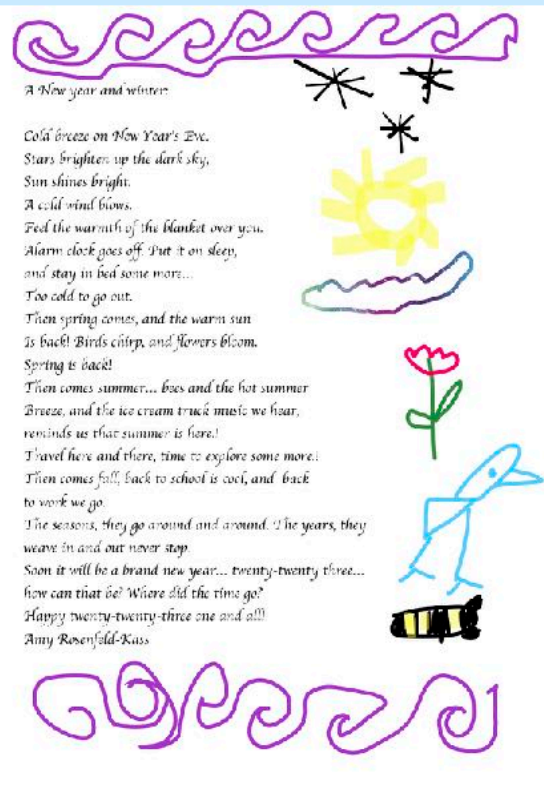 A New year and winter:
Cold breeze on New Year's Eve.
Stars brighten up the dark sky,
Sun shines bright.
A cold wind blows.
Feel the warmth of the blanket over you.
Alarm clock goes off. Put it on sleep,
and stay in bed some more...
Too cold to go out.
Then spring comes, and the warm sun
Is back! Birds chirp, and flowers bloom.
Spring is back!
Then comes summer... bees and the hot summer
Breeze, and the ice cream truck music we hear,
reminds us that summer is here.!
Travel here and there, time to explore some more.!
Then comes fall, back to school is cool, and back
to work we go.
The seasons, they go around and around. The years, they
weave in and out never stop.
Soon it will be a brand new year... twenty-twenty three...
how can that be? Where did the time go?
Happy twenty-twenty-three one and all!!
Amy Rosenfeld-Kass